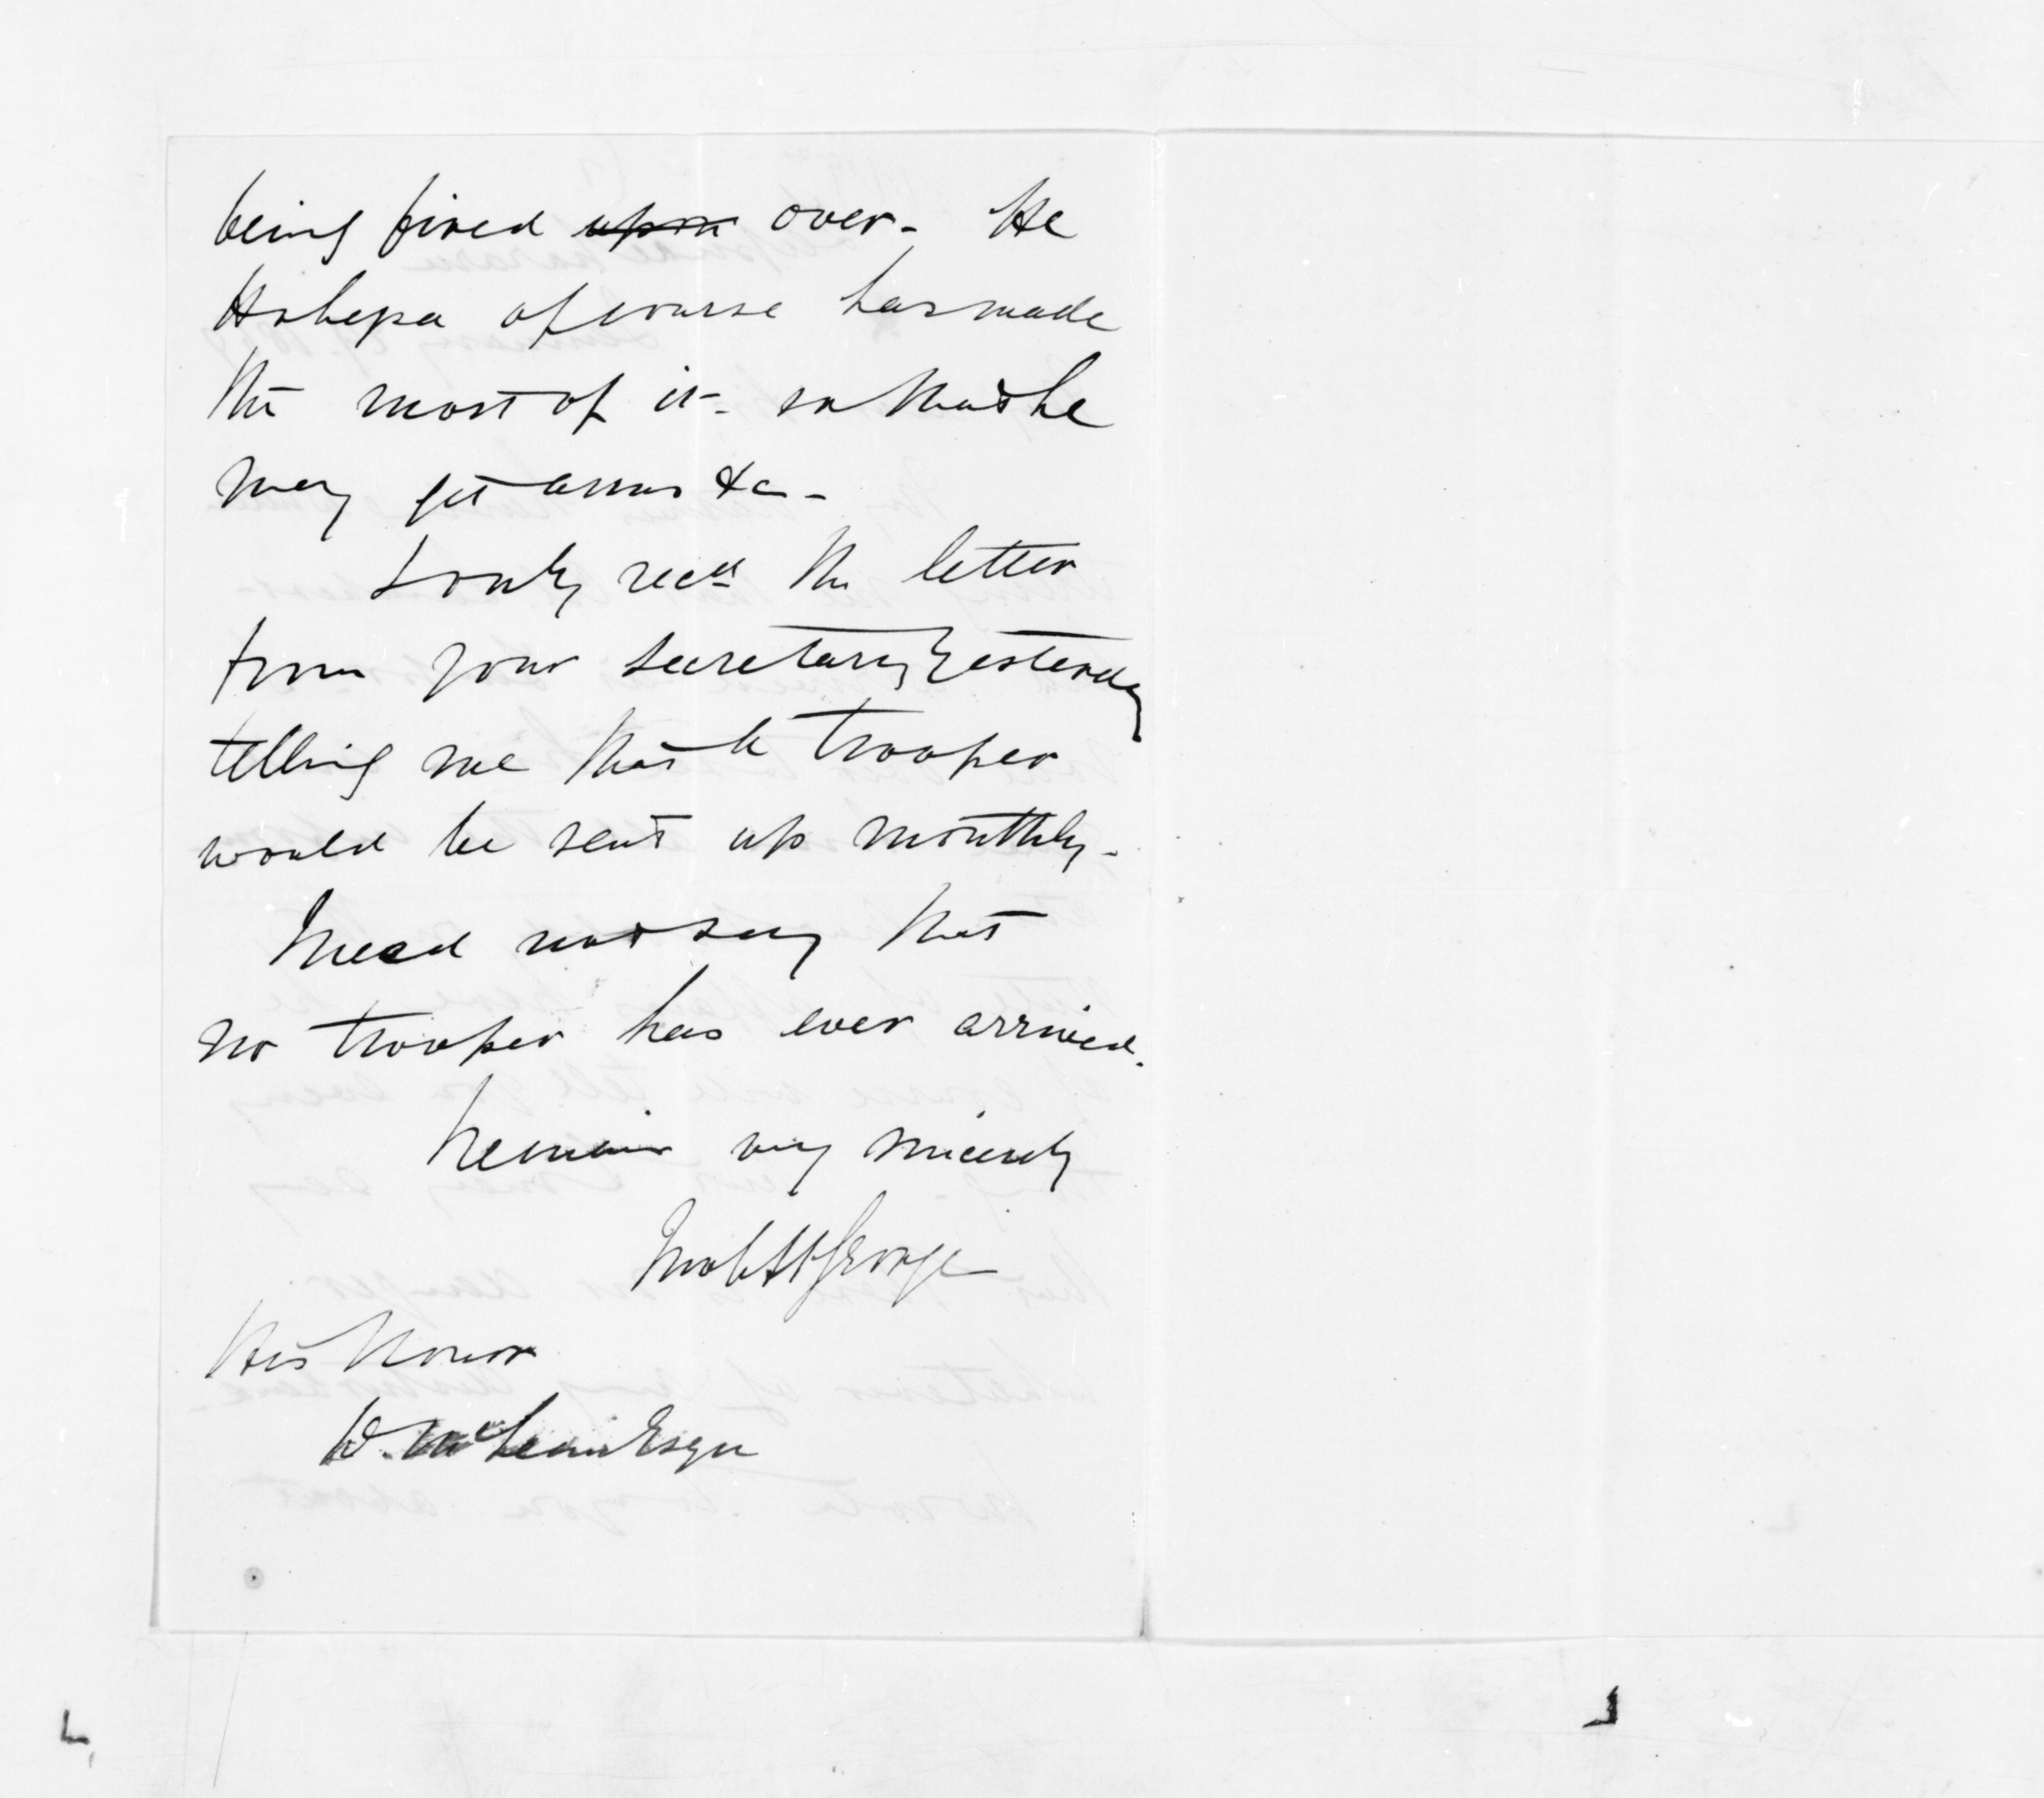 being fired upon over. He
Hohepa of course has made
the most of it. so that he
may get arms &c -
I only recd the letter
from your secretary yesterday
telling me that a trooper
would be sent up monthly.
I need not say that
no trooper has ever arrived.
I remain very sincerely
St George
His Honor
D. McLean Esqre